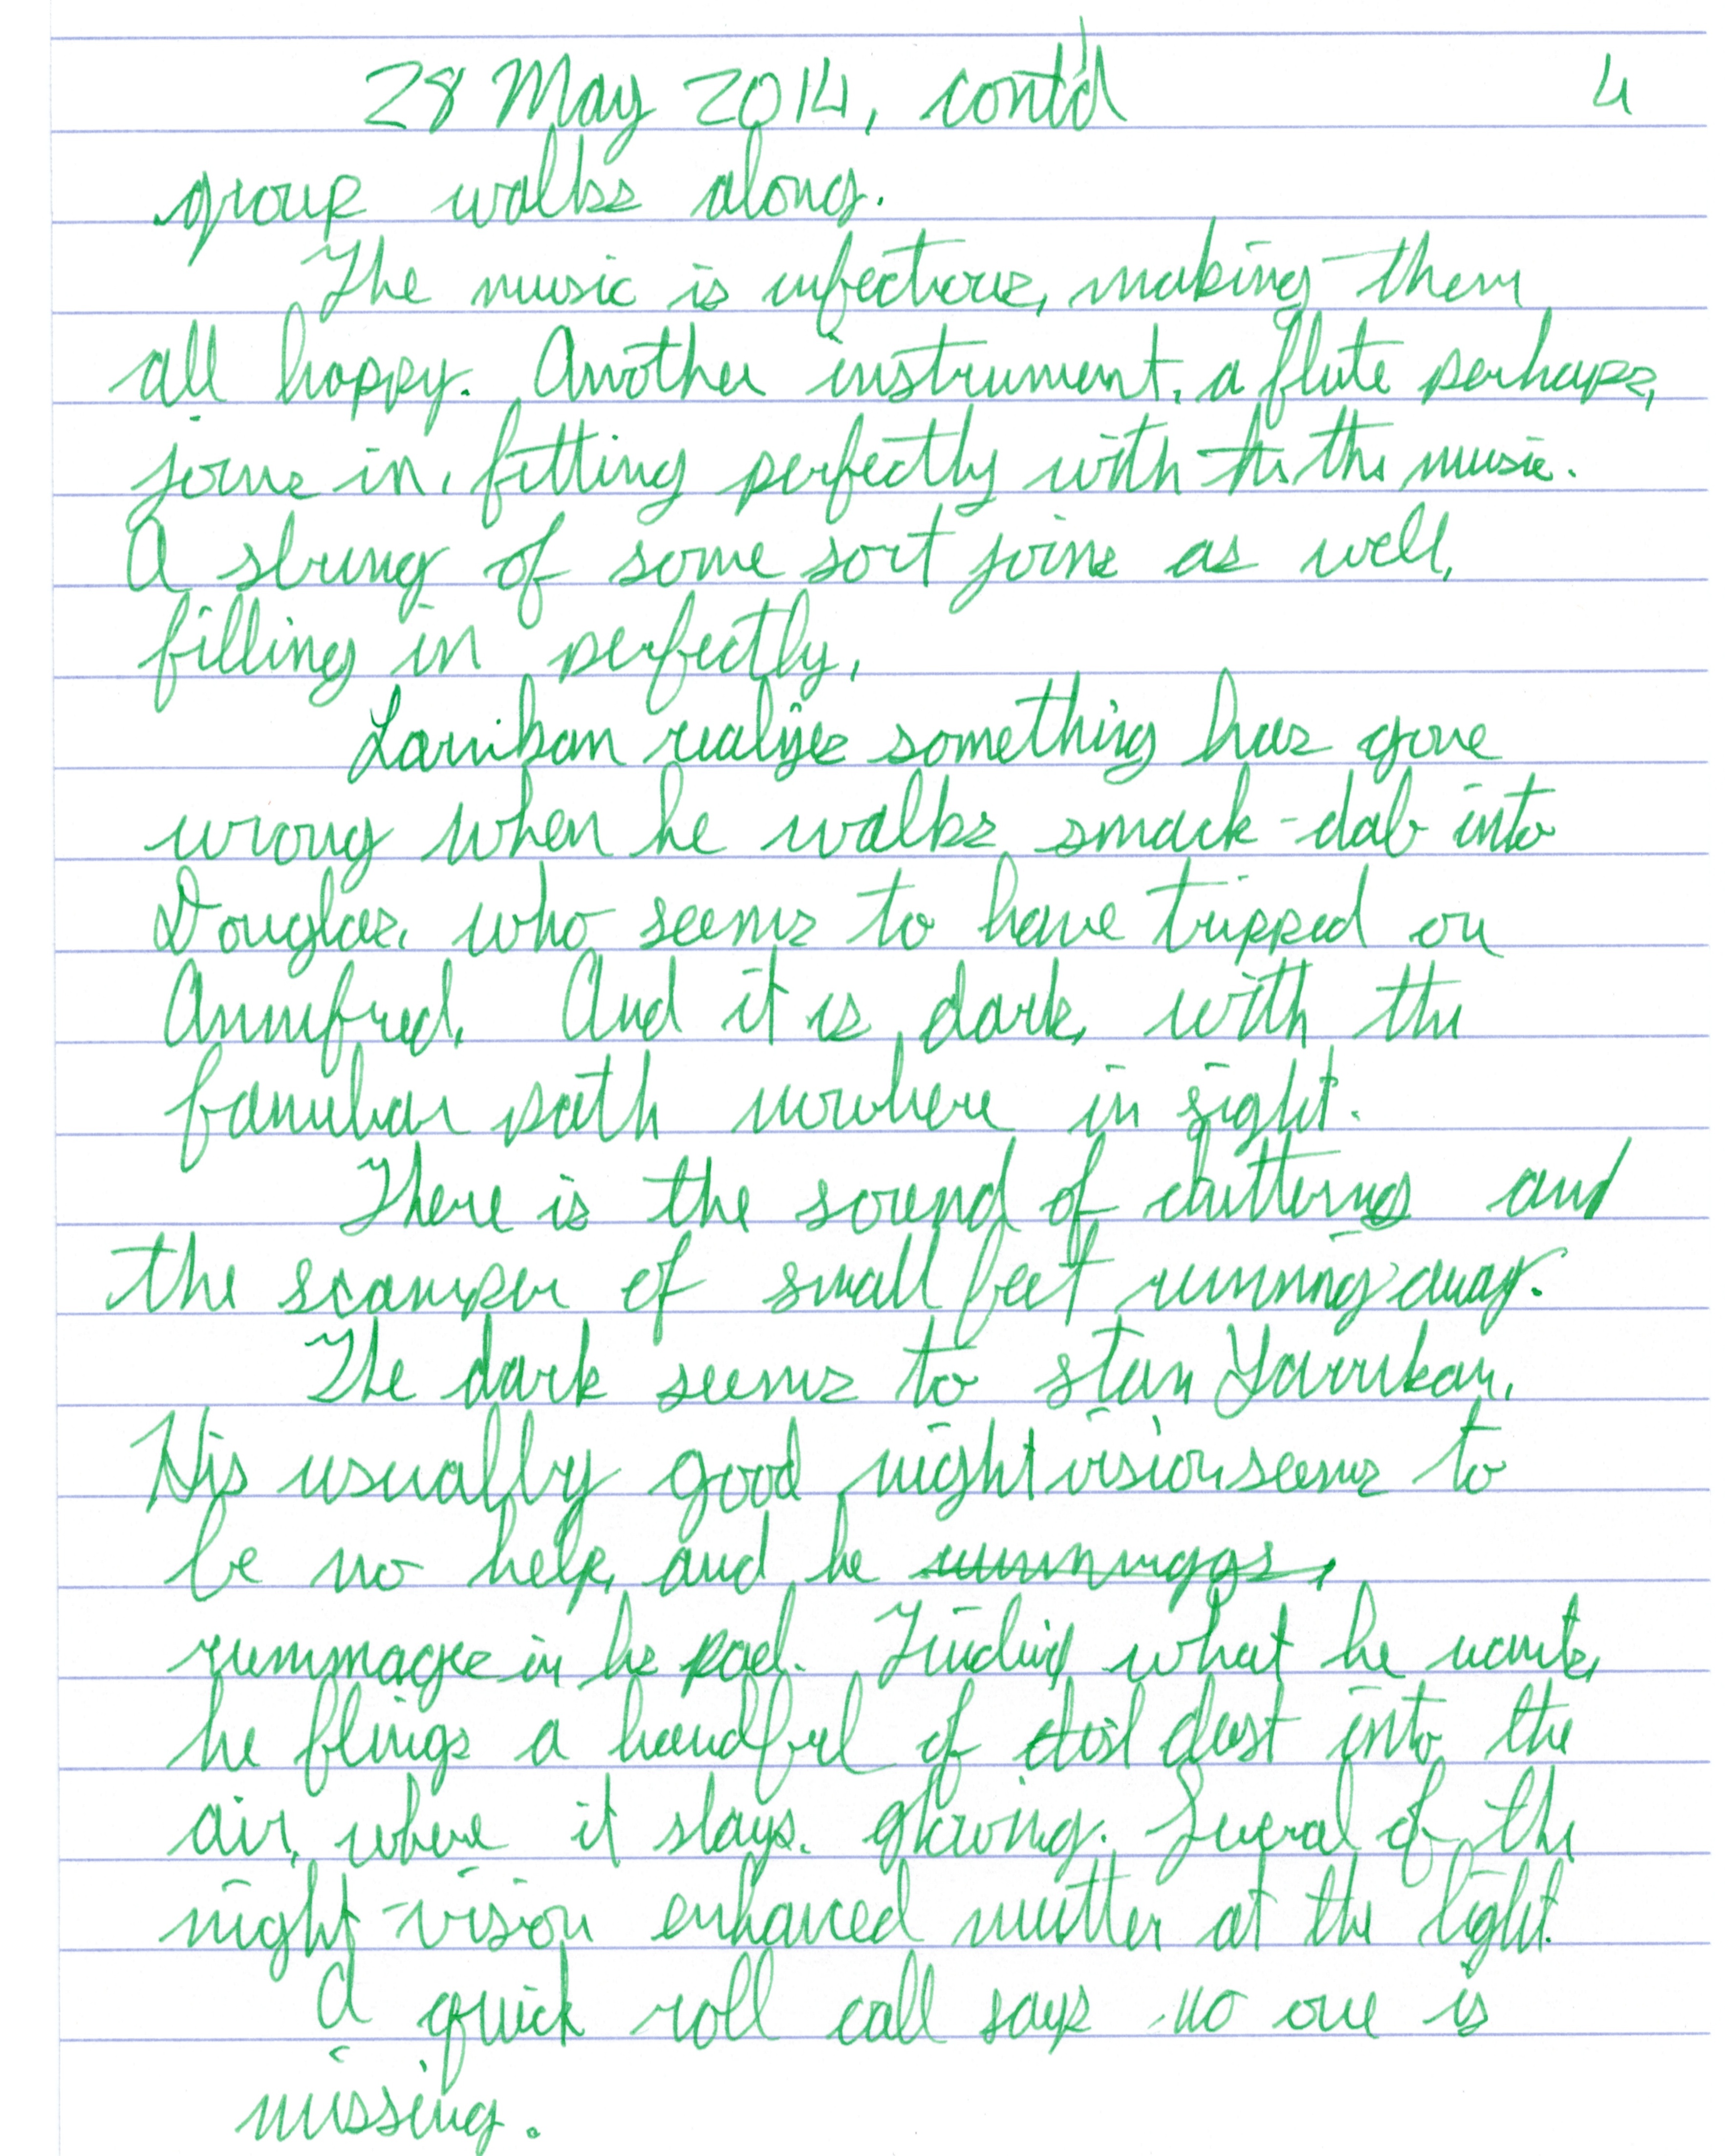 28 May 2014, cont'd 4
group walks along.
The music is infectious, making them
all happy. Another instrument, a flute perhaps,
joins in, fitting perfectly with the music.
A string of some sort joins as well,
filling in perfectly.
Larrikan realizes something has gone
wrong when he walks smack-dab into
Douglas, who seems to have tripped on
Annifred. And it is dark, with the
familiar path nowhere in sight.
There is the sound of chittering and
the scamper of small feet running away.
The dark seems to stun Yarrikan.
His usually good night vision seems to
be no help, and he
rummages in his pack. Finding what he wants,
he flings a handful of dust into the
air, where it stays, glowing. Several of the
night-vision enhanced mutter at the light.
A quick roll call says no one is
missing.